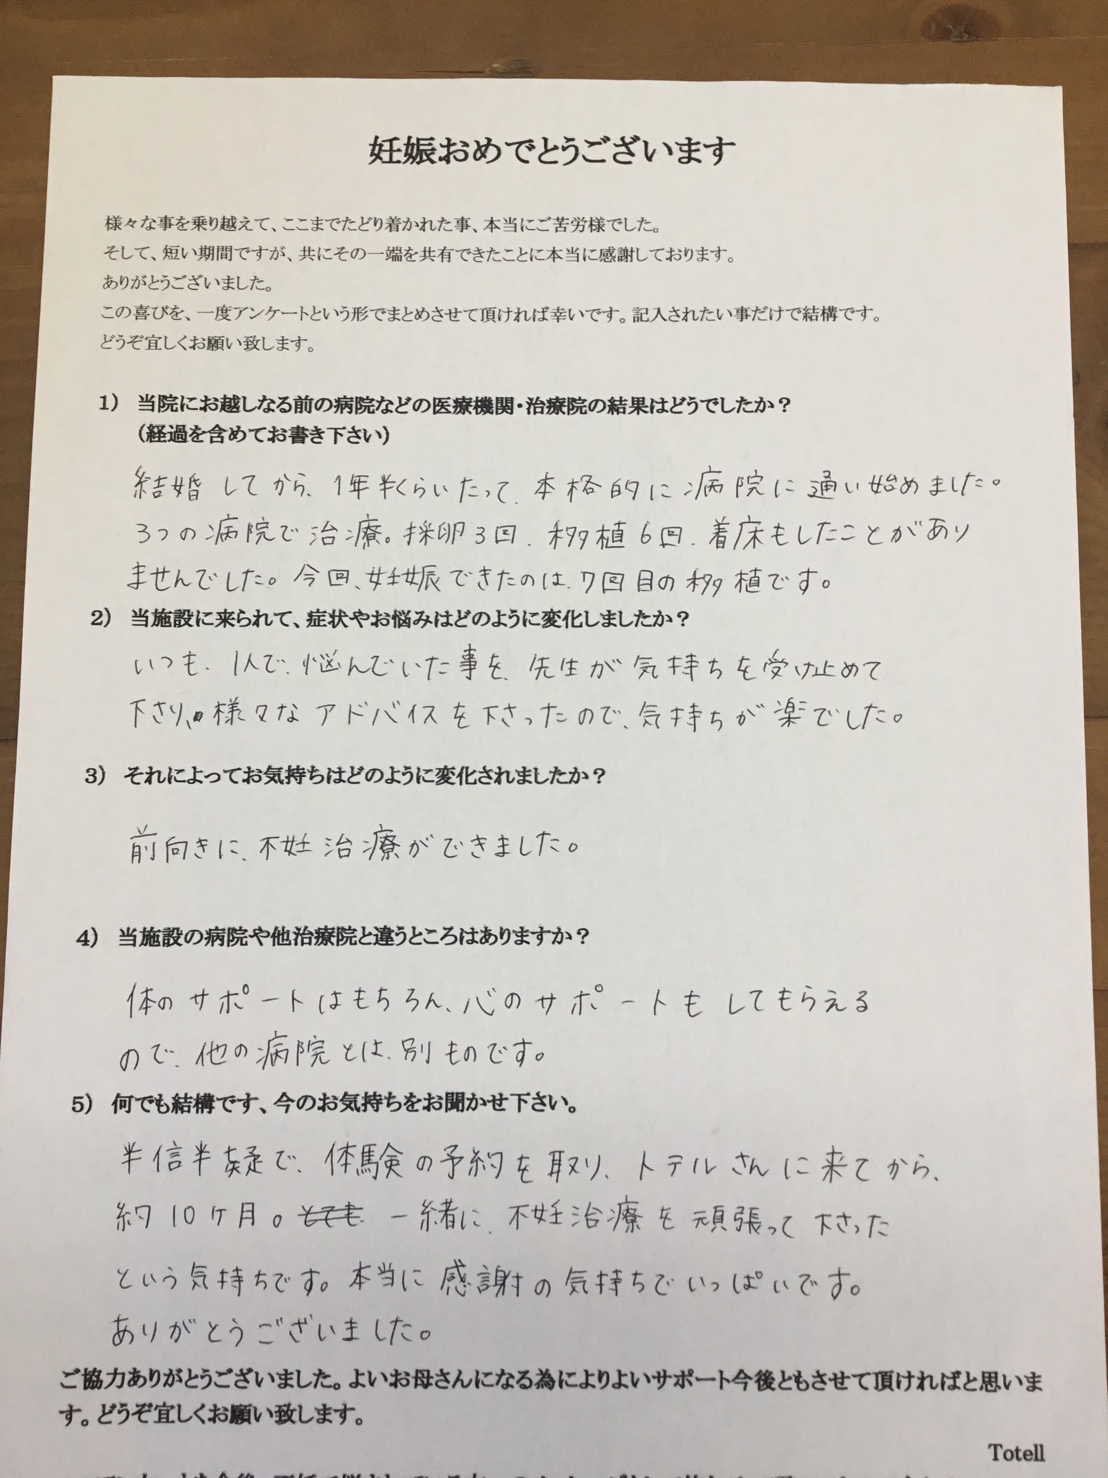 妊娠おめでとうございます
様々な事を乗り越えて、ここまでたどり着かれた事、本当にご苦労様でした。
そして、短い期間ですが、共にその一端を共有できたことに本当に感謝しております。
ありがとうございました。
この喜びを、一度アンケートという形でまとめさせて頂ければ幸いです。記入されたい事だけで結構です。
どうぞ宜しくお願い致します。
1） 当院にお越しなる前の病院などの医療機関・治療院の結果はどうでしたか？
（経過を含めてお書き下さい）
結婚してから、1年半くらいたって、本格的に病院に通い始めました。
3つの病院で治療。採卵3回、移植6回、着床もしたことがあり
ませんでした。今回、妊娠できたのは、7回目の移植です。
2） 当施設に来られて、症状やお悩みはどのように変化しましたか？
いつも、1人で、悩んでいた事を、先生が気持ちを受け止めて
下さり、様々なアドバイスを下さったので、気持ちが楽でした。
3） それによってお気持ちはどのように変化されましたか？
前向きに、不妊治療ができました。
4） 当施設の病院や他治療院と違うところはありますか？
体のサポートはもちろん、心のサポートもしてもらえる
ので、他の病院とは、別ものです。
5） 何でも結構です、今のお気持ちをお聞かせ下さい。
半信半疑で、体験の予約を取り、トテルさんに来てから、
約10ヶ月。とても 一緒に、不妊治療を頑張って下さった
という気持ちです。本当に感謝の気持ちでいっぱいです。
ありがとうございました。
ご協力ありがとうございました。よいお母さんになる為によりよいサポート今後ともさせて頂ければと思いま
す。どうぞ宜しくお願い致します。
Totell